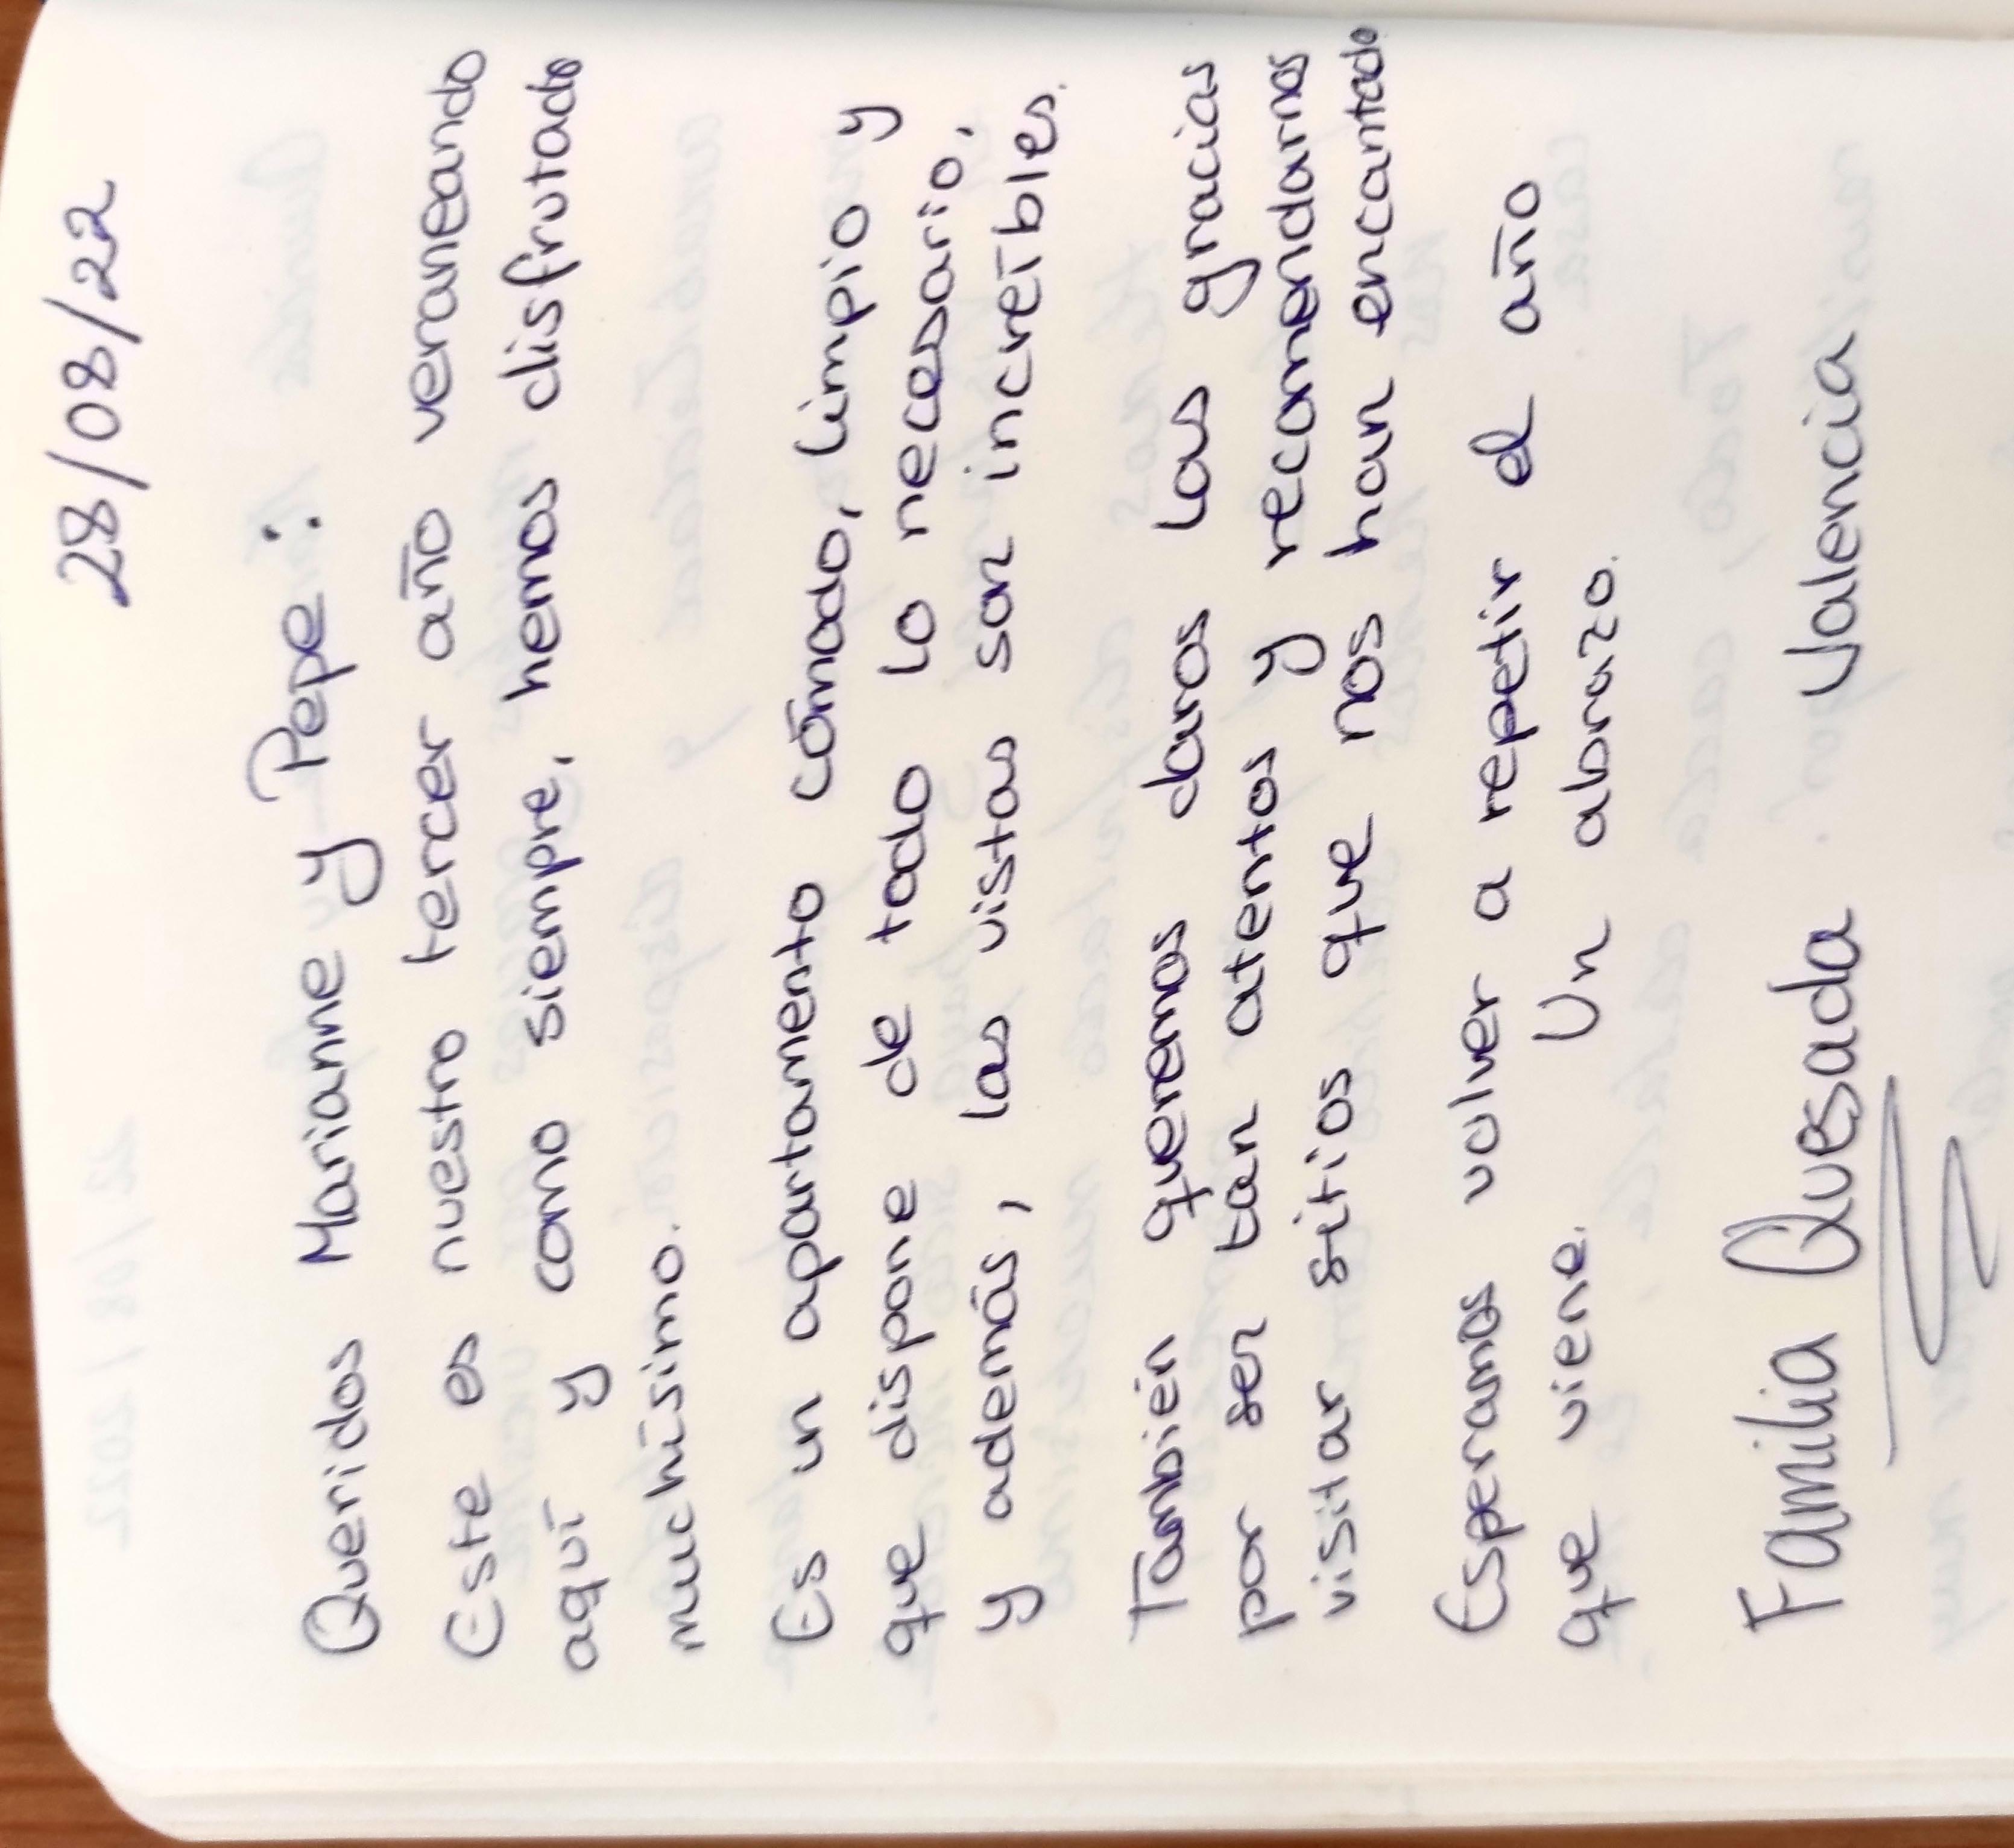 28/08/22
Queridos Marianne y Pepe:
Este es nuestro tercer año veraneando
aquí y como siempre, hemos disfrutado
muchísimo.
Es un apartamento cómodo, limpio y
que dispone de todo lo necesario,
y además, las vistas son increíbles.
También queremos daros las gracias
por ser tan atentos y recomendarnos
visitar sitios que nos han encantado
Esperamos volver a repetir el año
que viene. Un abrazo.
Familia Quesada Valencia